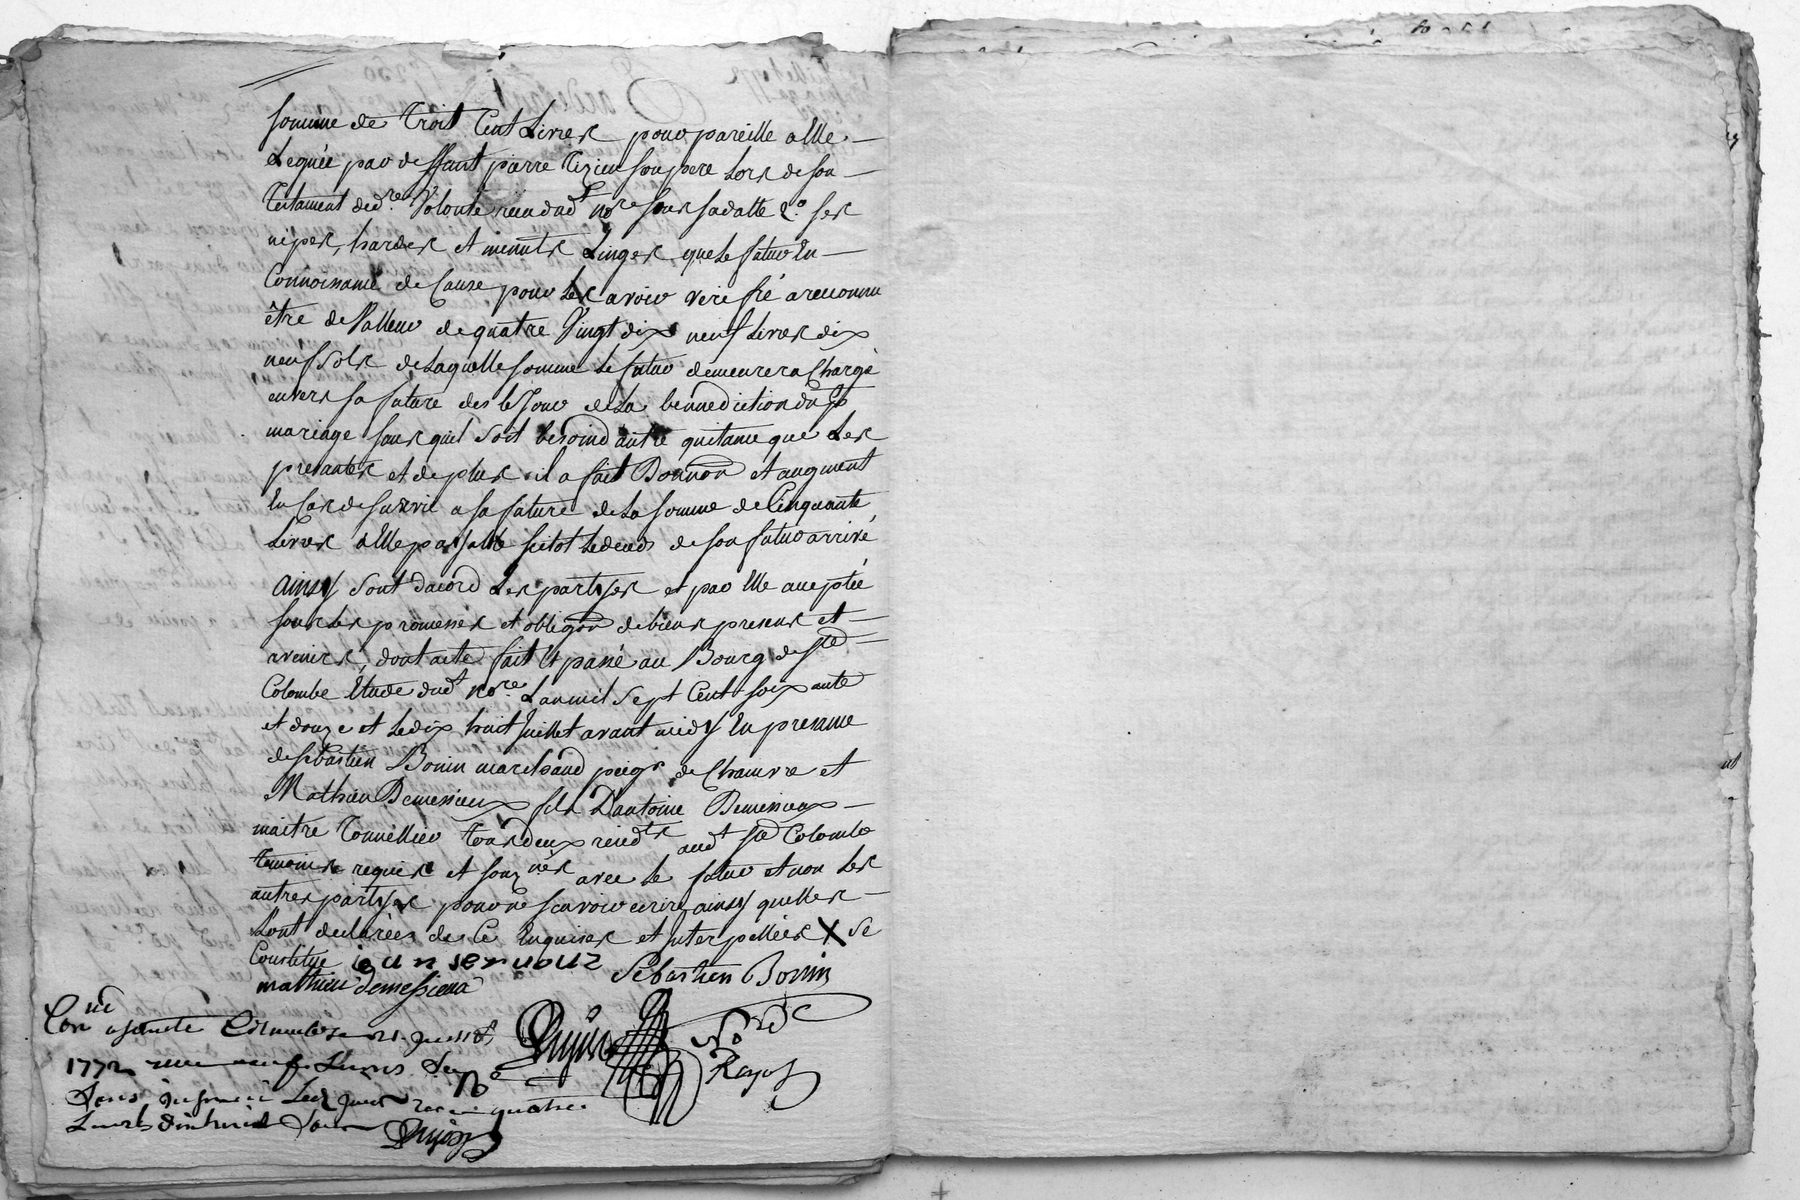 somme de troit Cent Livres pour pareille a Elle
Leguée par deffunt pierre son pere Lors de son
Testament de dre. Volonté recu dud nore sous sa datte 2.o ses
nipes, hardes et menuts Linges, que le futur En
Connoissance de Cause pour Les avoir verifié a reconnu
être de Valleur de quatre Vingt dix neuf Livres dix
neuf sols de Laquelle somme Le futur demeurera Chargé
envers sa future des le Jour de La bennediction dud
mariage sans quil soit besoind autre quitance que Les
presantes et de plus il a fait Donnon et augment
En Cas de survie a sa future de La somme de Cinquante
Livres a Elle payable sitot Le deceds de son futur arrivé
ainsy sont dacord Les partyes et par Elle acceptée
sous Les promesses et obligon de biens presens et
avenirs, dont acte fait Et passé au Bourg de Ste
Colombe Etude dud nore. L'an mil sept Cent soixante
et douze et Le dix huit Juillet avant midy En presence
de sebastien Bonin marchand peigr de Chanvre et
Mathieu Demessieux fils D'antoine Demessieux
maitre Tonnellier tous deux residts aud Ste Colombe
temoins requis et souznés avec le futur et non Les
autres partyes pour ne scavoir ecrire ainsy quelles
sont declarées de Ce Enquises et Interpellées X se
Constitue
Sebastien Bonin
mathieu demessieux
Conlle a sainte Colombe le 21. Juillet
1772
Livres
quatre
Dujon
Royot
Dujon